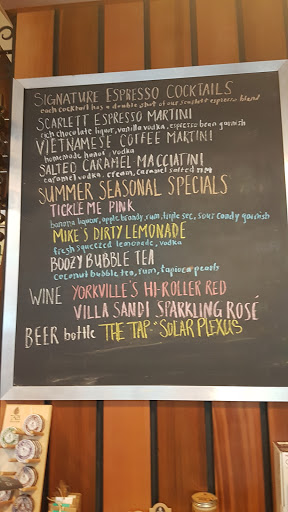 SIGNATURE ESPRESSO COCKTAILS
each cocktail has a double shot of our scarlett espresso blend
SCARLETT ESPRESSO MARTINI
rich chocolate liquor, vanilla vodka, espresso bean garnish
VIETNAMESE COFFEE MARTINI
homemade hanoi, vodka
SALTED CARAMEL MACCIATINI
caramel vodka, cream, caramel salted rim
SUMMER SEASONAL SPECIALS
TICKLE ME PINK
banana liqueur, apple brandy, rum, triple sec, sour candy garnish
MIKE'S DIRTY LEMONADE
fresh squeezed lemonade, vodka
BOOZY BUBBLE TEA
coconut bubble tea, rum, tapioca pearls
WINE YORKVILLE'S HI-ROLLER RED
VILLA SANDI SPARKLING ROSÉ
BEER bottle THE TAP SOLAR PLEXUS